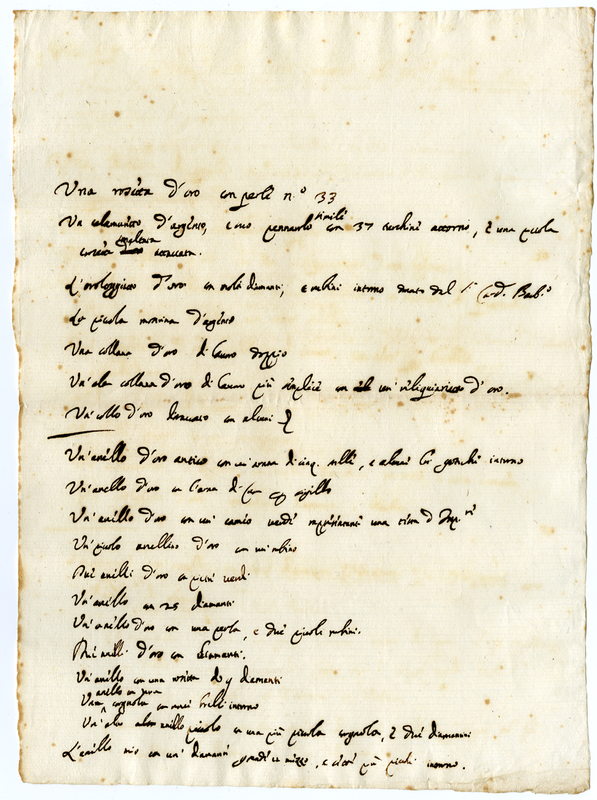 Una rosetta d'oro con perle n.º 33
Un calamarito d'argento, e suo pennarolo simile con 37 turchine attorno, è una piccola
attaccata.
L'orologgietto d'oro con molti diamanti, e rubini intorno donato dal S.r Card. Barb.º
La piccola d'argento
Una collana d'oro di lauro doppio
Un'altra collana d'oro di lauro più simplice con un reliquiarietto d'oro.
Un'collo d'oro con alcuni
Un'anello d'oro antico con un'arma di cinq. stelle, e alcuni intorno
Un'anello d'oro con l'arma di Casa sigillo
Un'anello d'oro con un'cameo verde representante una testa d'Imp.re
Un'piccolo anellino d'oro con un'rubino
Dui anelli d'oro con pietre verdi
Un'anello con 25 diamanti
Un'anello d'oro con una perla, e due piccoli rubini.
Dui anelli d'oro con diamanti.
Un'anello con una rosetta di 9 diamanti
anello con
Una cognola con intorno
Un'altro anello piccolo con una più piccola cognola, è due diamanti
L'anello mio con un'diamante grande in mezzo, e più piccoli intorno.